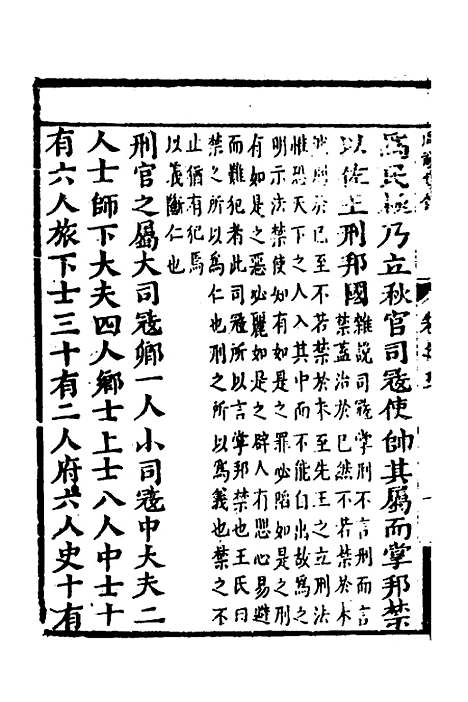 爲民極乃立秋官司寇使帥其屬而掌邦禁
以佐王刑邦國
雜說司寇掌刑不言刑而言
禁蓋治於已然不若禁於未
然刑於已至不若禁於未至先王之立刑法
惟恐天下之人入其中而不能自出故爲之
明示法禁使如有如是之罪必陷如是之刑
有如是之惡必麗如是之辟人有恐心易避
而難犯者此司寇所以言掌邦禁也王氏曰
禁之所以爲仁也刑之所以爲義也禁之不
止猶有犯焉
以義斷仁也
刑官之屬大司寇卿一人小司寇中大夫二
人士師下大夫四人鄉士上士八人中士十
有六人旅下士三十有二人府六人史十有